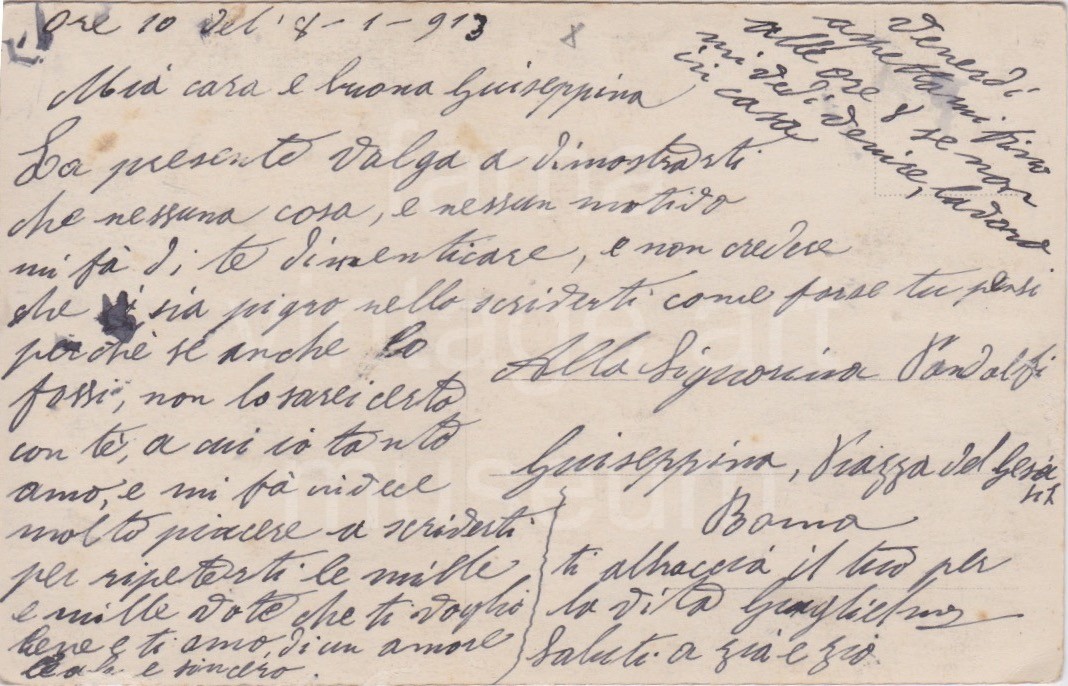 ore 10 del 8-1-913
Mia cara e buona Guiseppina
La presente valga a dimostrarti
che nessuna cosa, e nessun motivo
mi fà di te dimenticare, e non credere
che sia pigro nello scriverti come forse tu pensi
perchè se anche lo
fossi, non lo sarei certo
con te, a cui io tanto
amo, e mi fà invece
molto piacere a scriverti
per ripeterti le mille
e mille volte che ti voglio
bene e ti amo, di un amore
leale e sincero.
Venerdì
aspettami fino
alle ore 8 se non
mi vedi venire, lavoro
in casa
Alla Signorina Pandolfi
Guiseppina, Piazza del Gesù
Roma
ti abbraccia il tuo per
la vita Guglielmo
Saluti a zia e zio.
fama
vintage art
museum